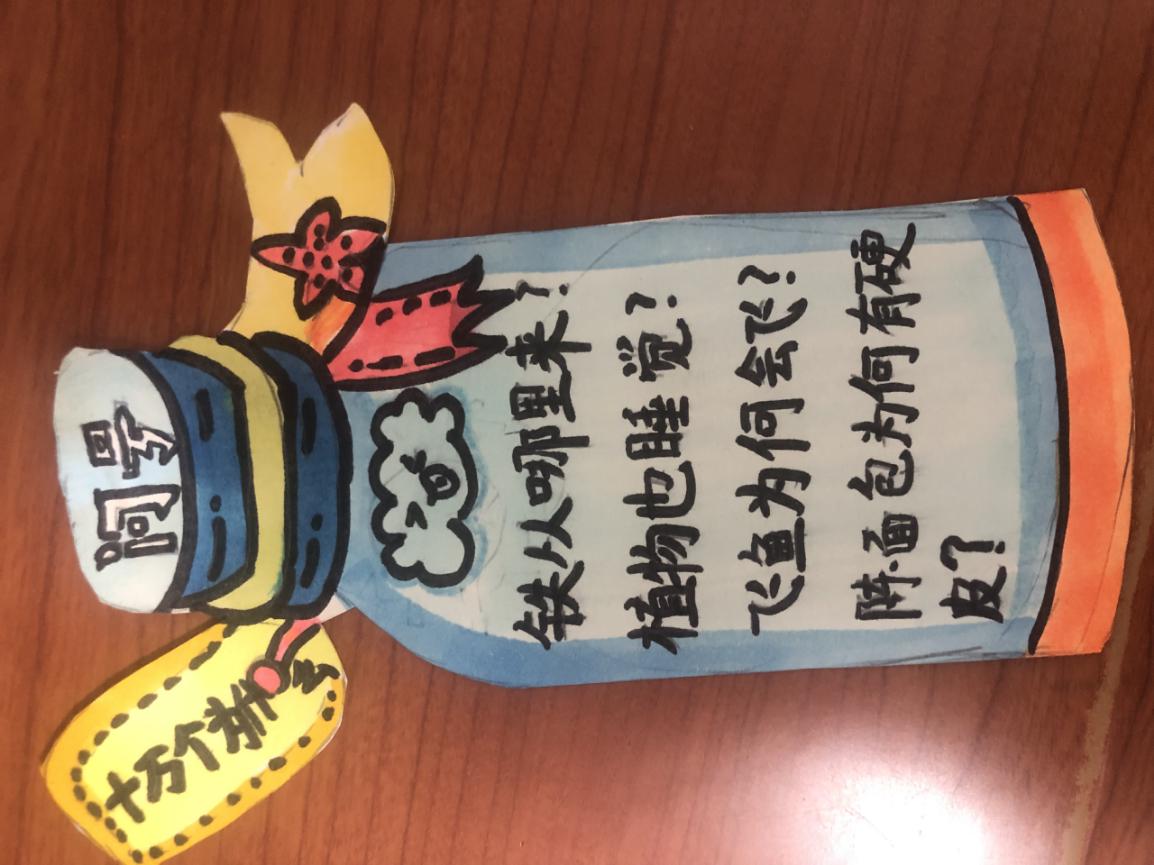 问号
十万个为什么
铁从哪里来?
植物也睡觉?
飞鱼为何会飞?
阵面包为何有硬
皮?